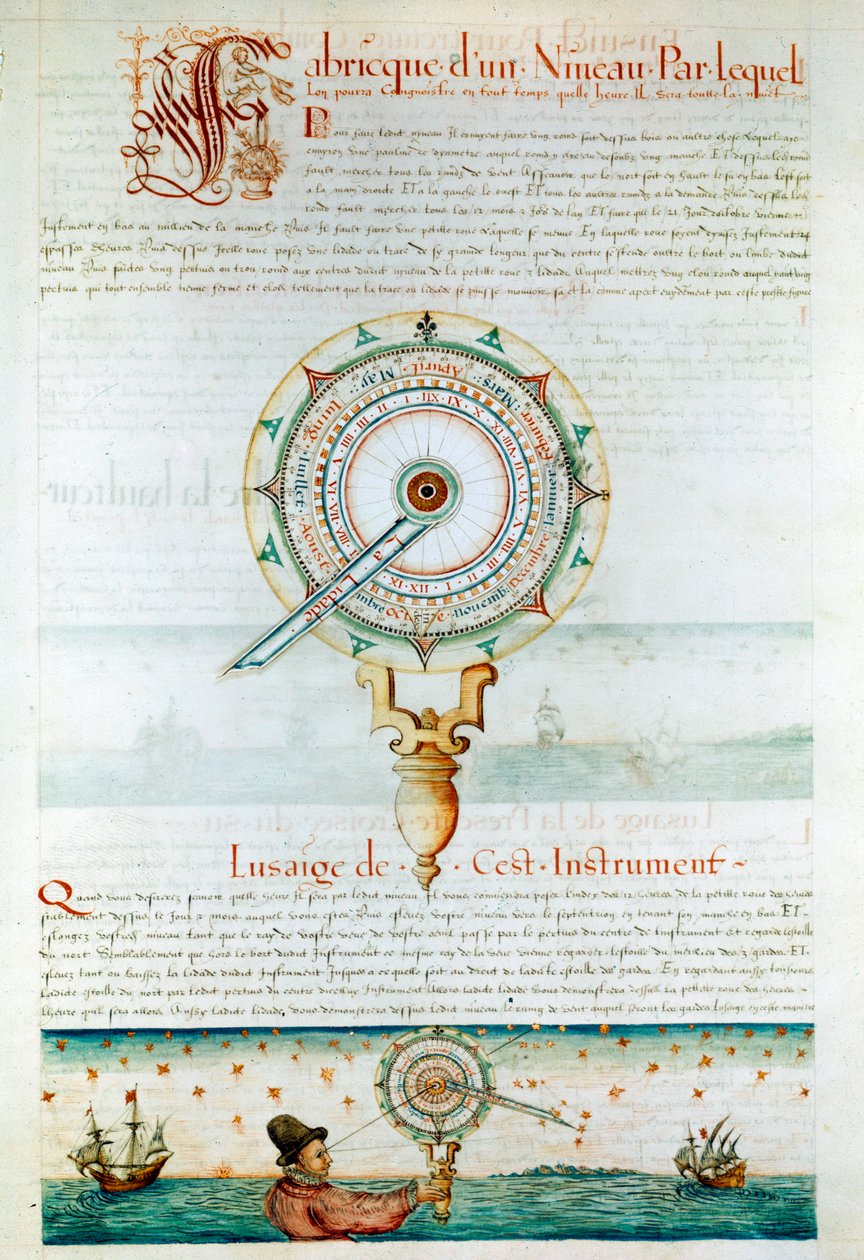 Fabricque · d'un · Niueau · Par · Lequel
Lon pourra Congnoistre en tout temps quelle heure IL sera toutte la nuict
Pour faire ledit nyueau Il conuyent faire vng rond soit dessus bois ou aultre chose Lequel aye
enuyron vne paulme de dyametre auquel rond y aye au desoubz vng manche ET dessus Ledit rond
fault mercher tous les rundz de vent Assçauoir que le nort soit en hault le su en bas Lest soit
a la main droicte ET a la gauche le ouest ET tous les aultres rundz a la demande Puis dessus Ledit
rond fault mercher tous les /12 mois & Jors de Lan ET faire que le /21 Jour doctobre vienne
Justement en bas au millieu de la manche Puis Il fault faire vne petitte roue Laquelle se meuue En laquelle roue soyent diuisez Justement 24
espasses dheures Puis dessus Jcelle roue posez vne lidade ou trace de sy grande longeur que du centre se stende oultre le bort ou limbe dudit
niueau Puis faictes vng pertuis ou trou rond aux centres dudit nyueau de la petitte roue & lidade Auquel mettrez vng clou rond auquel
pertuis qui tout ensemble tienne ferme et clos tellement que la trace ou lidade se puisse mouuoir sa et la comme apert euydemment par ceste presente figure
Mars
Apuril
May
Juing
Juillet
Aoust
octo
Nouemb
Decembre
Januier
Feburier
XII · I · II · III · IIII · V · VI · VII · VIII · IX · X · XI · XII · I · II · III · IIII · V · VI · VII · VIII · IX · X · XI
La Lidade
Lusaige de · Cest · Instrument
Quand vous desirerez scauoir quelle heure Il sera par ledit niueau Il vous conuiendra poser Lindex des /12/ heures de la petitte roue des heures
stablement dessus le Jour & mois auquel vous estes Puis esleuez vostre niueau vers le septentrion en tenant son manche en bas ET
eslongez vostredit niueau tant que le ray de vostre veue de vostre oeuil passe par le pertuis du centre de linstrument Et regarde lestoille
du nort Semblablement que hors le bort dudit Instrument ce mesme ray de la veue vienne regarder lestoille du meillieu des /2/ gardes ET
esleuez tant ou baissez la lidade dudit Instrument Jusques a ce quelle soit au droit de ladite estoille des gardes / En regardant aussy tousiours
Ladite estoille du nort par ledit pertuis du centre dicelluy Instrument Allors ladite lidade vous demonstrera dessus La petitte roue des heures
Lheure quil sera allors Aussy ladite lidade vous demonstrera dessus ledit niueau le rumg de vent auquel seront les gardes Lusaige en ceste maniere